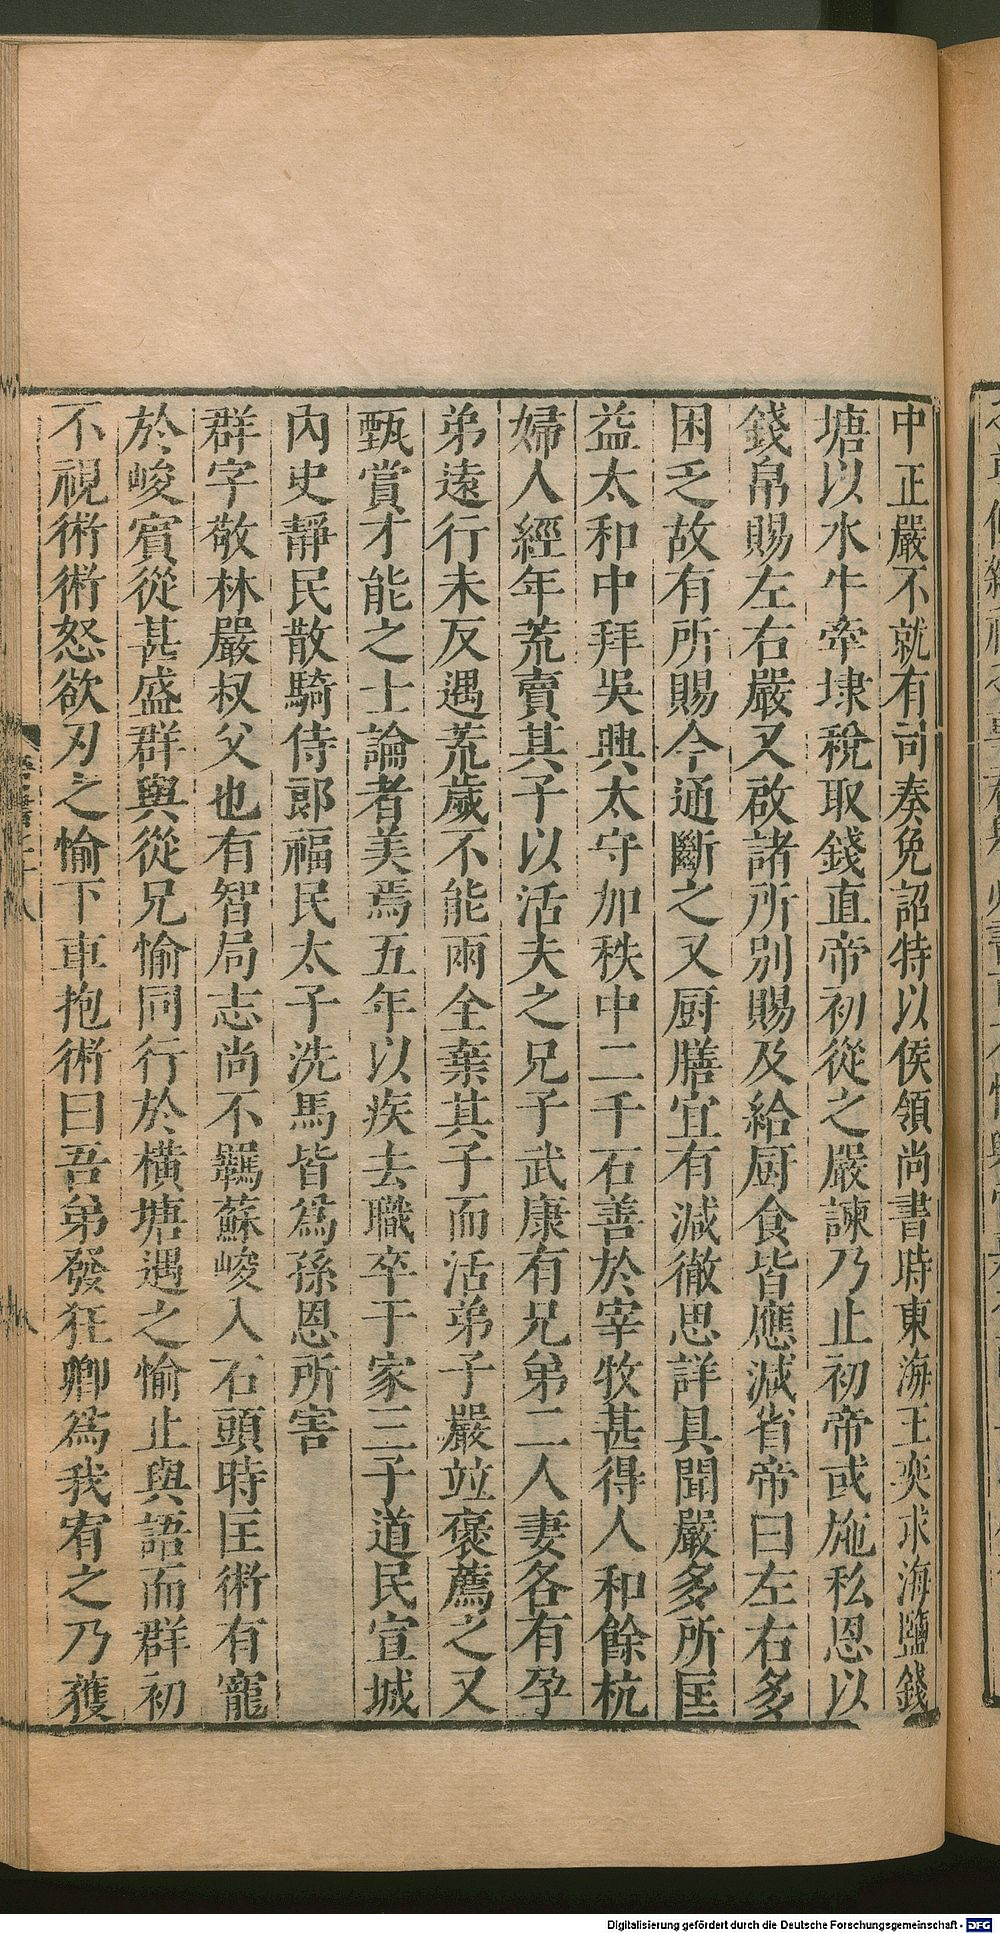 中正嚴不就有司奏免詔特以侯領尚書時東海王奕求海鹽錢
塘以水牛牽埭稅取錢直帝初從之嚴諫乃止初帝或施私恩以
錢帛賜左右嚴又啟諸所別賜及給厨食皆應減省帝曰左右多
困乏故有所賜今通斷之又厨膳宜有減徹思詳具聞嚴多所匡
益太和中拜吳興太守加秩中二千石善於宰牧甚得人和餘杭
婦人經年荒賣其子以活夫之兄子武康有兄弟二人妻各有孕
弟遠行未反遇荒歲不能兩全棄其子而活弟子嚴竝褒薦之又
甄賞才能之士論者美焉五年以疾去職卒于家三子道民宣城
內史靜民散騎侍郎福民太子洗馬皆爲孫恩所害
群字敬林嚴叔父也有智局志尚不羈蘇峻入石頭時匡術有寵
於峻賓從甚盛群與從兄愉同行於橫塘遇之愉止與語而群初
不視術術怒欲刃之愉下車抱術曰吾弟發狂卿爲我宥之乃獲
Digitalisierung gefördert durch die Deutsche Forschungsgemeinschaft - DFG